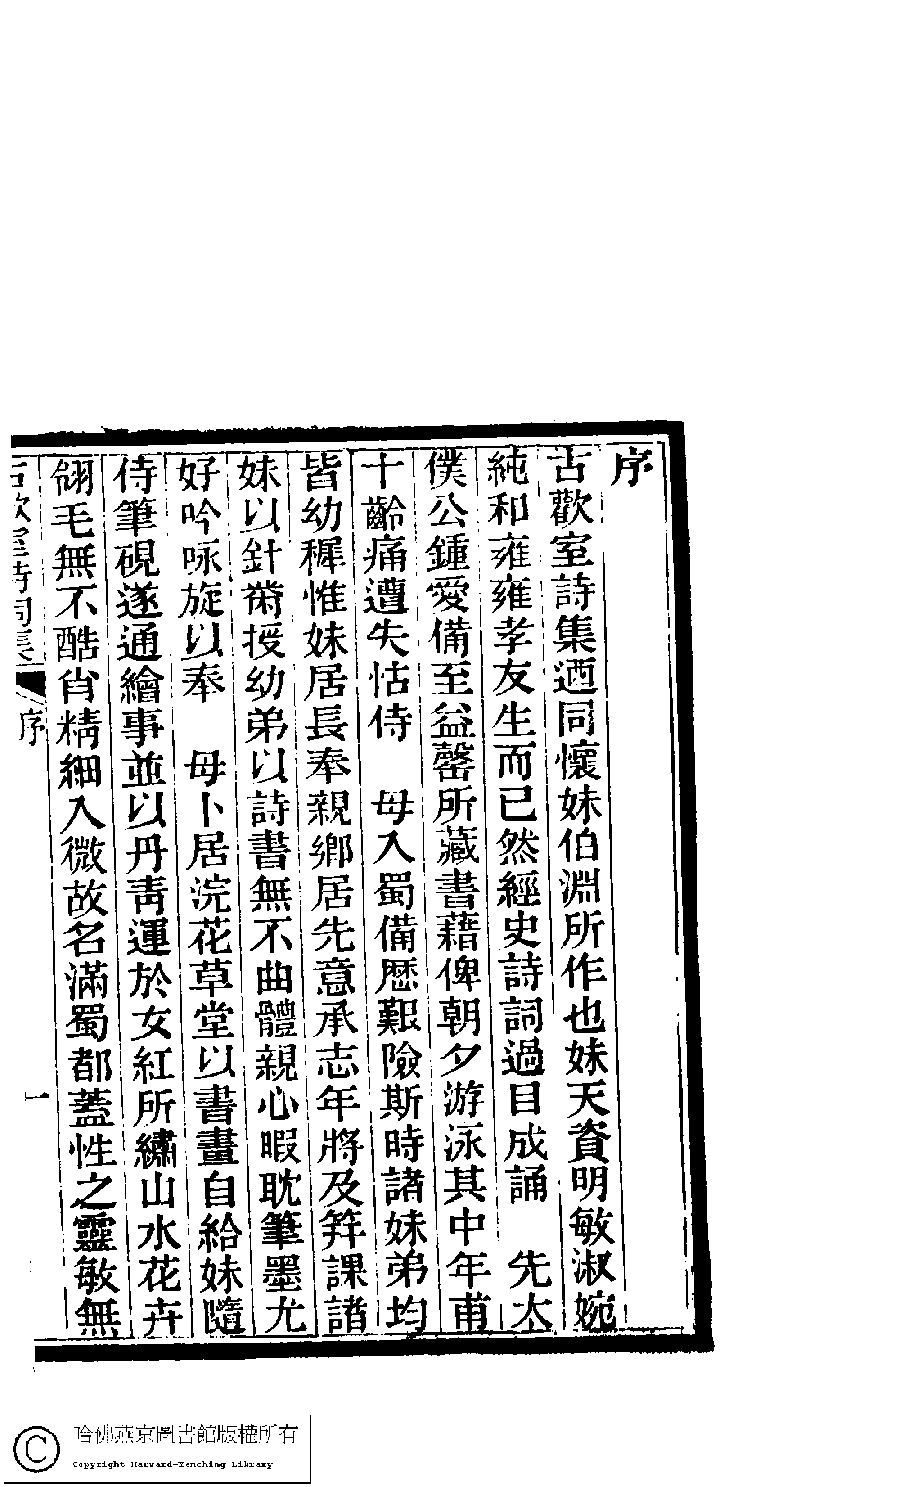 序
古歡室詩集迺同懷妹伯淵所作也妹天資明敏淑婉
純和雍雍孝友生而已然經史詩詞過目成誦　先太
僕公鍾愛備至益罄所藏書藉俾朝夕游泳其中年甫
十齡痛遭失怙侍　母入蜀備歷艱險斯時諸妹弟均
皆幼穉惟妹居長奉親鄉居先意承志年將及筓課諸
妹以針黹授幼弟以詩書無不曲體親心暇耽筆墨尤
好吟咏旋以奉　母卜居浣花草堂以書畫自給妹隨
侍筆硯遂通繪事並以丹青運於女紅所繡山水花卉
翎毛無不酷肖精細入微故名滿蜀都蓋性之靈敏無
古歡室詩詞集
序
一
哈佛燕京圖書館版權所有
Copyright Harvard-Yenching Library